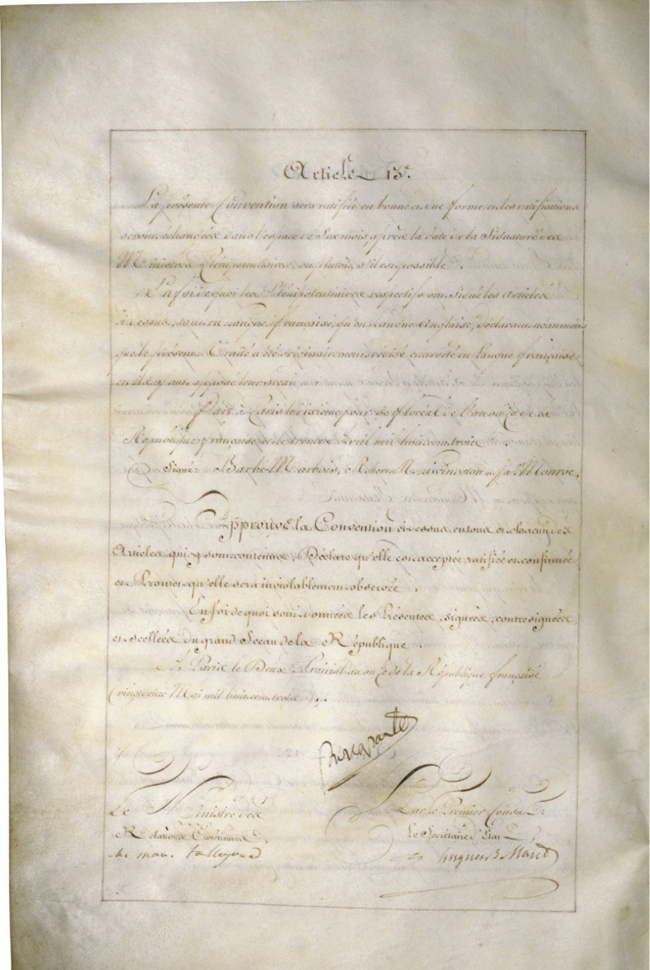 Article 13.e
La présente Convention sera ratifiée en bonne et due forme, et les ratifications
seront échangées dans l'espace de Six mois, après la date de la Signature des
Ministres Plénipotentiaires, ou plutôt, s'il est possible.
En foi de quoi les Plénipotentiaires respectifs ont signé les articles
ci dessus, tant en langue française, qu'en langue anglaise, déclarant néanmoins
que le présent Traité a été originairement rédigé et arrêté en langue française;
et ils y ont apposé leur sceau.
fait à Paris le dixième jour de floréal de l'an onze de la
République française, et le trente Avril mil huit cent trois.
Signé Barbé-Marbois, Robert R. Livingston et Ja.s Monroe.
Approuve la Convention ci dessus en tous et chacun des
Articles qui y sont contenus; Déclare qu'elle est acceptée, ratifiée et confirmée
et Promet qu'elle sera inviolablement observée.
En foi de quoi sont données les Présentes, signées, contresignées
et scellées du grand Sceau de la République.
à Paris le Deux Prairial an onze de la République française
(vingt deux Mai mil huit cent trois).
Bonaparte
Le Ministre des
Relations Extérieures
ch. mau. Talleyrand
Par le Premier Consul:
Le Secrétaire d'Etat
Hugues B. Maret